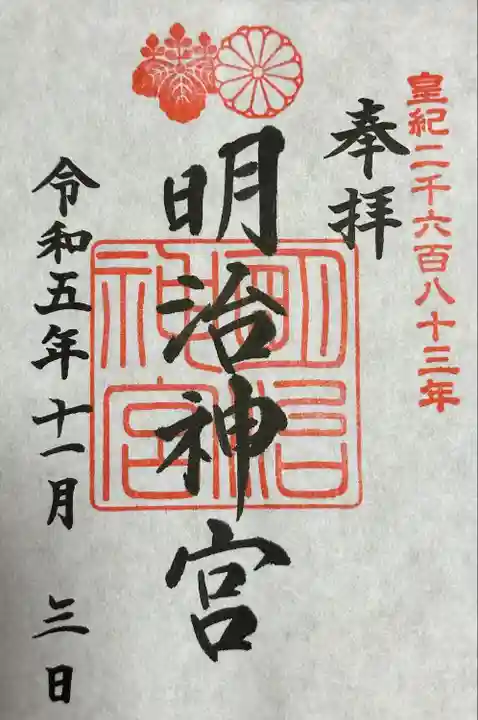 皇紀二千六百八十三年
奉拝
明治神宮
明治神宮
令和五年十一月 三日